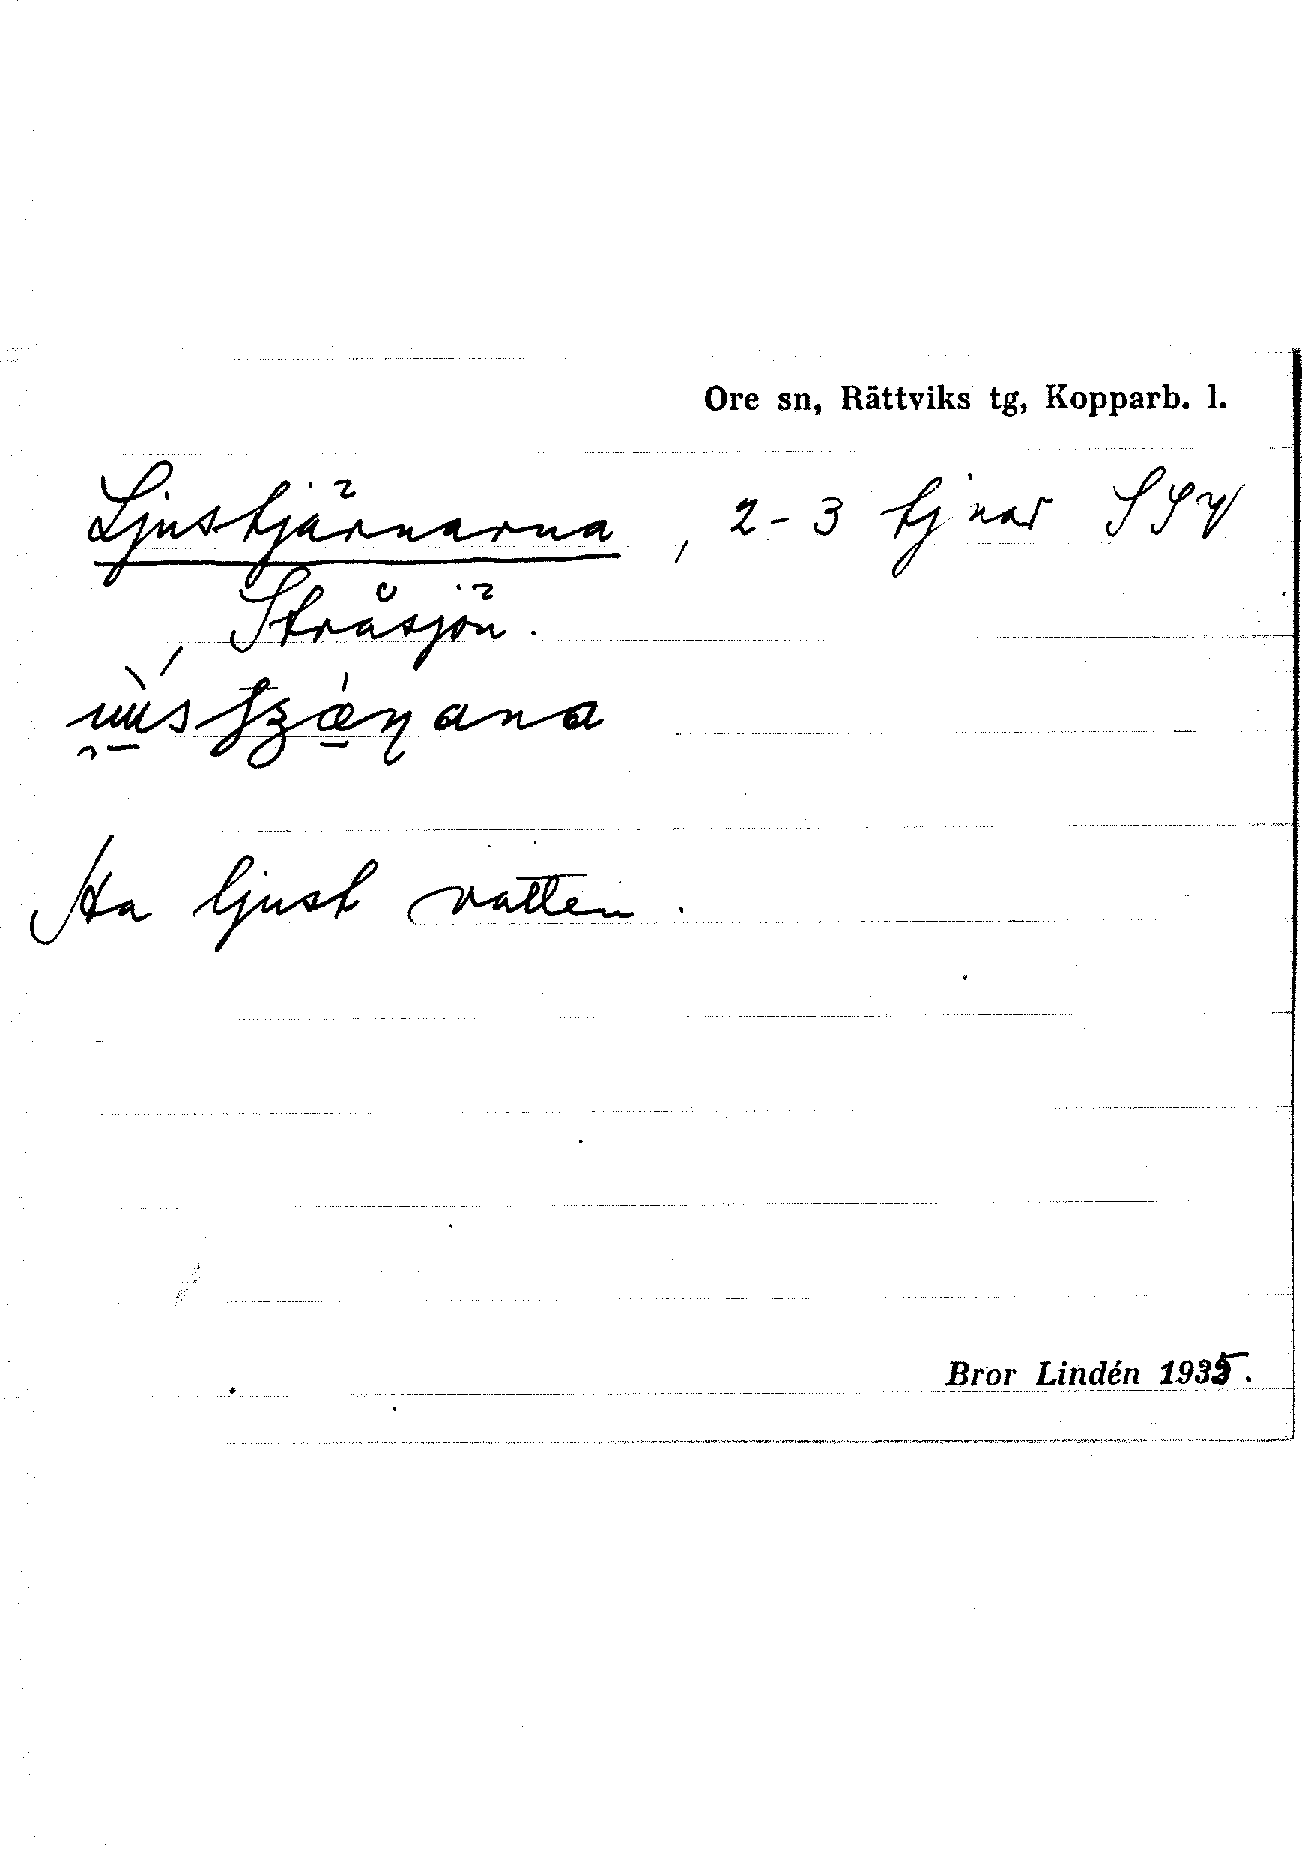 Ore sn, Rättviks tg, Kopparb. l.
Ljustjärnarna, 2-3 tjnar SSV
Stråsjön.
Ha ljust vatten.
Bror Lindén 1935.